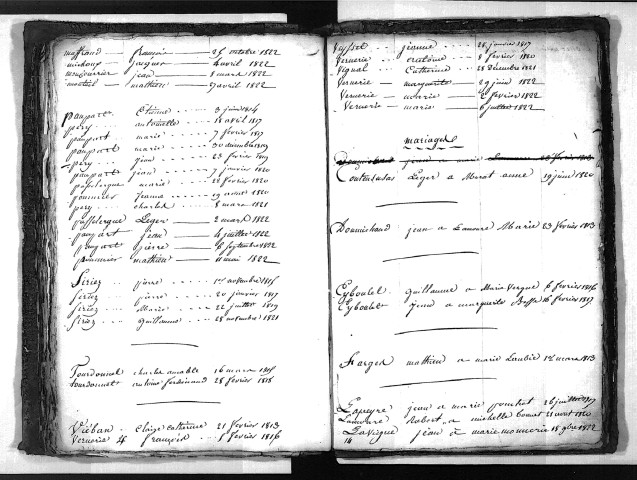 maffrand — françois — 25 octobre 1822
jacques — 4 avril 1822
jean — 8 mars 1822
mathieu — 9 avril 1822
paupart étienne 3 juin 1814
pery antoinette 18 avril 1817
paupart marie 7 février 1817
paupart marie 30 novembre 1819
pery jean 23 février 1819
paupart jean 7 janvier 1820
passelergue marie 28 février 1820
pommier jeanne 19 août 1820
pery charles 8 mars 1821
passelergue Léger — 2 mars 1822
paupart jean — 4 juillet 1822
paupart pierre — 6 septembre 1822
pommier mathieu — mai 1822
Sériez pierre 1er novembre 1815
Sériez pierre 20 janvier 1817
Sériez marie 22 juillet 1819
Sériez guillaume 28 novembre 1821
Tourdonnet charles amable 16 mars 1815
Tourdonnet antoine ferdinand 28 février 1818
Viéban Claire Catherine 21 février 1813
Vernerie françois 5 février 1816
Veysset jeanne 28 janvier 1817
Vernerie 8 février 1820
Vignal Catherine 28 Décembre 1821
Vernerie marguerite 29 juin 1822
Vernerie marie 2 février 1822
Vernerie marie 6 juillet 1822
mariages
jean marie
Léger a anne 19 juin 1820
jean a Lamoure Marie 23 février 1813
Eyboulet guillaume a Maria Vergne 6 février 1816
Eyboulet jean a marguerite 16 février 1817
Farges mathieu a marie Loubie 12 mars 1813
Lapeyre jean a marie 26 juillet 1819
Lamoure Robert a michelle 21 août 1820
Lavigne jean a marie monnerie 18 9bre 1822